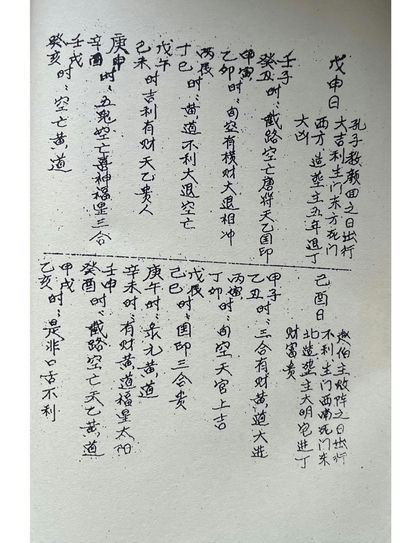 戊申日
孔子教颜回之日出行
大吉利生门东方死门
西方造塟主五年退丁
大凶
壬子
癸丑时:截路空亡唐符天乙国印
甲寅
乙卯时:旬空有横财大退相冲
丙辰
丁巳时:黄道不利大退空亡
戊午
己未时吉利有财天乙贵人
庚申
辛酉时:五鬼空亡喜神福星三合
壬戌
癸亥时:空亡黄道
己酉日
赵伯主败阵之日出行
不利生门西南死门东
北造塟主大明宅进丁
财富贵
甲子
乙丑时:三合有财黄道大进
丙寅
丁卯时:旬空天官上吉
戊辰
己巳时:国印三合贵
庚午时:元黄道
辛未时:有财黄道福星太阳
壬申时
癸酉时:截路空亡天乙黄道
甲戌
乙亥时:是非口舌不利